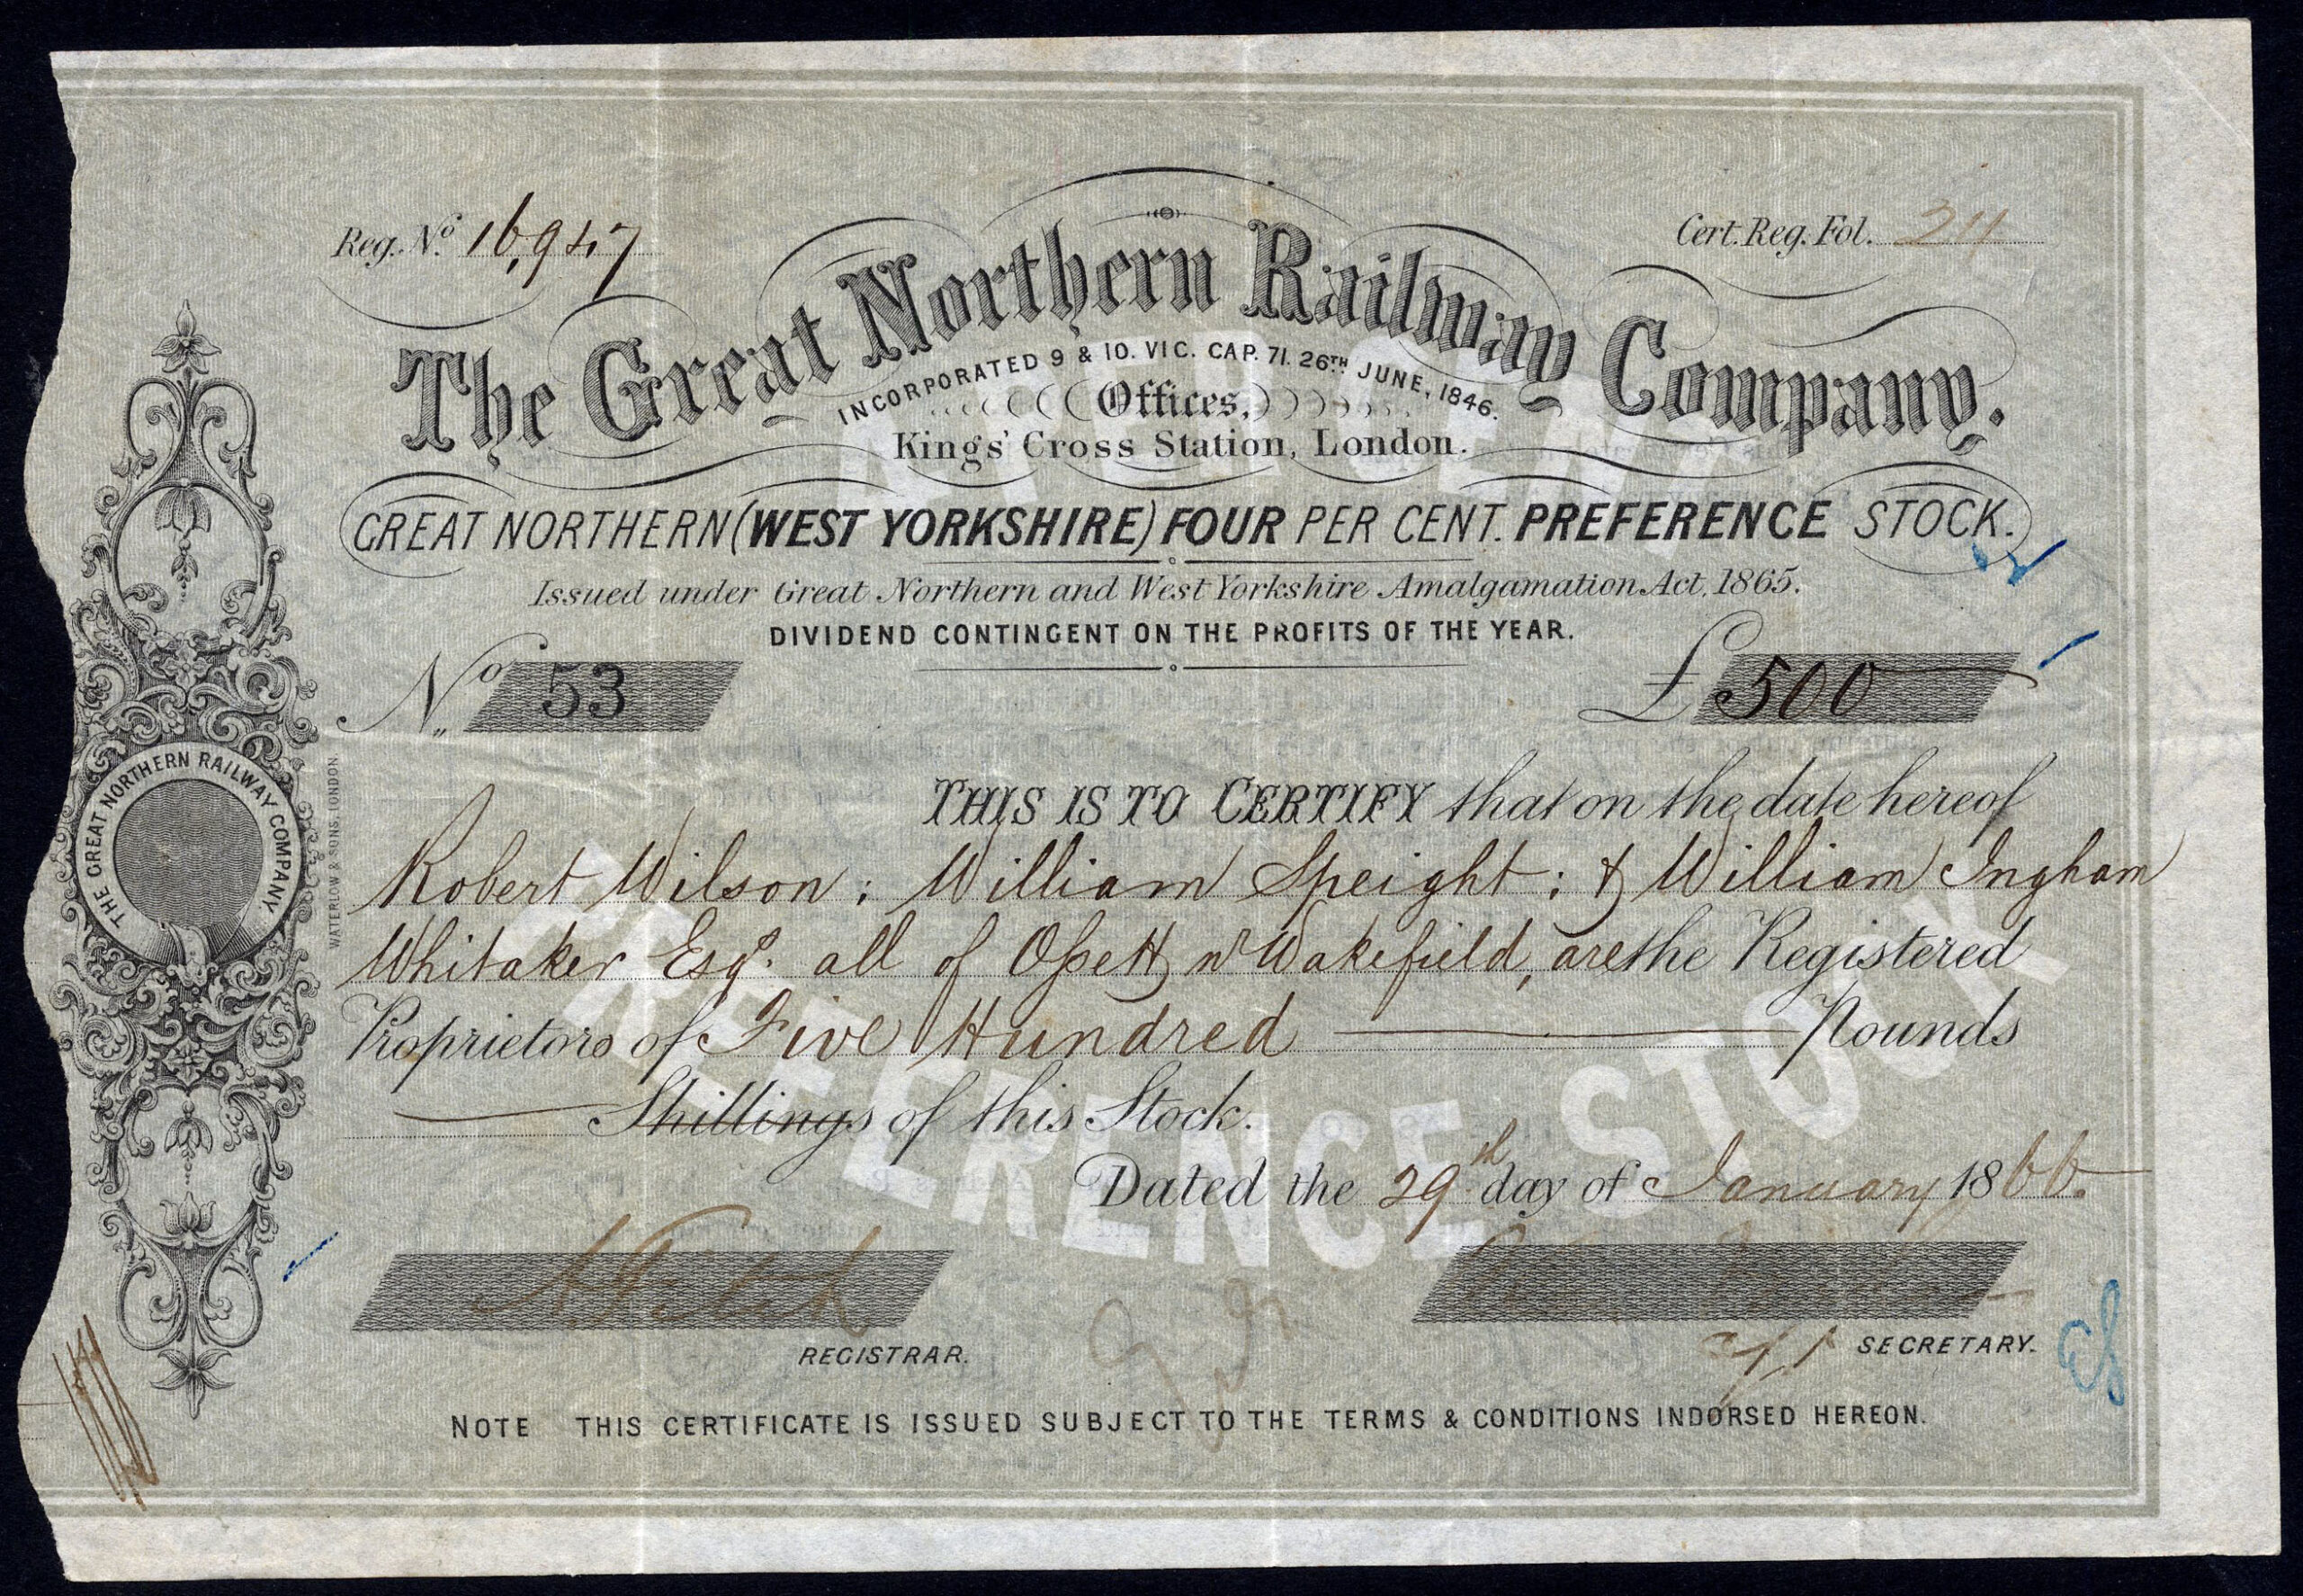 Reg. No. 16,947
Cert. Reg. Fol. 211
The Great Northern Railway Company.
INCORPORATED 9 & 10. VIC. CAP. 71. 26TH JUNE, 1846.
Offices,
Kings' Cross Station, London.
GREAT NORTHERN (WEST YORKSHIRE) FOUR PER CENT. PREFERENCE STOCK.
Issued under Great Northern and West Yorkshire Amalgamation Act, 1865.
DIVIDEND CONTINGENT ON THE PROFITS OF THE YEAR.
No. 53
£ 500
THIS IS TO CERTIFY that on the date hereof
Robert Wilson; William Speight; & William Ingham
Whitaker Esqs. all of Ossett nr Wakefield, are the Registered
Proprietors of Five Hundred Pounds
Shillings of this Stock.
Dated the 29th day of January 1866.
REGISTRAR.
SECRETARY.
NOTE THIS CERTIFICATE IS ISSUED SUBJECT TO THE TERMS & CONDITIONS INDORSED HEREON.
THE GREAT NORTHERN RAILWAY COMPANY
WATERLOW & SONS, LONDON
4 PER CENT
PREFERENCE STOCK